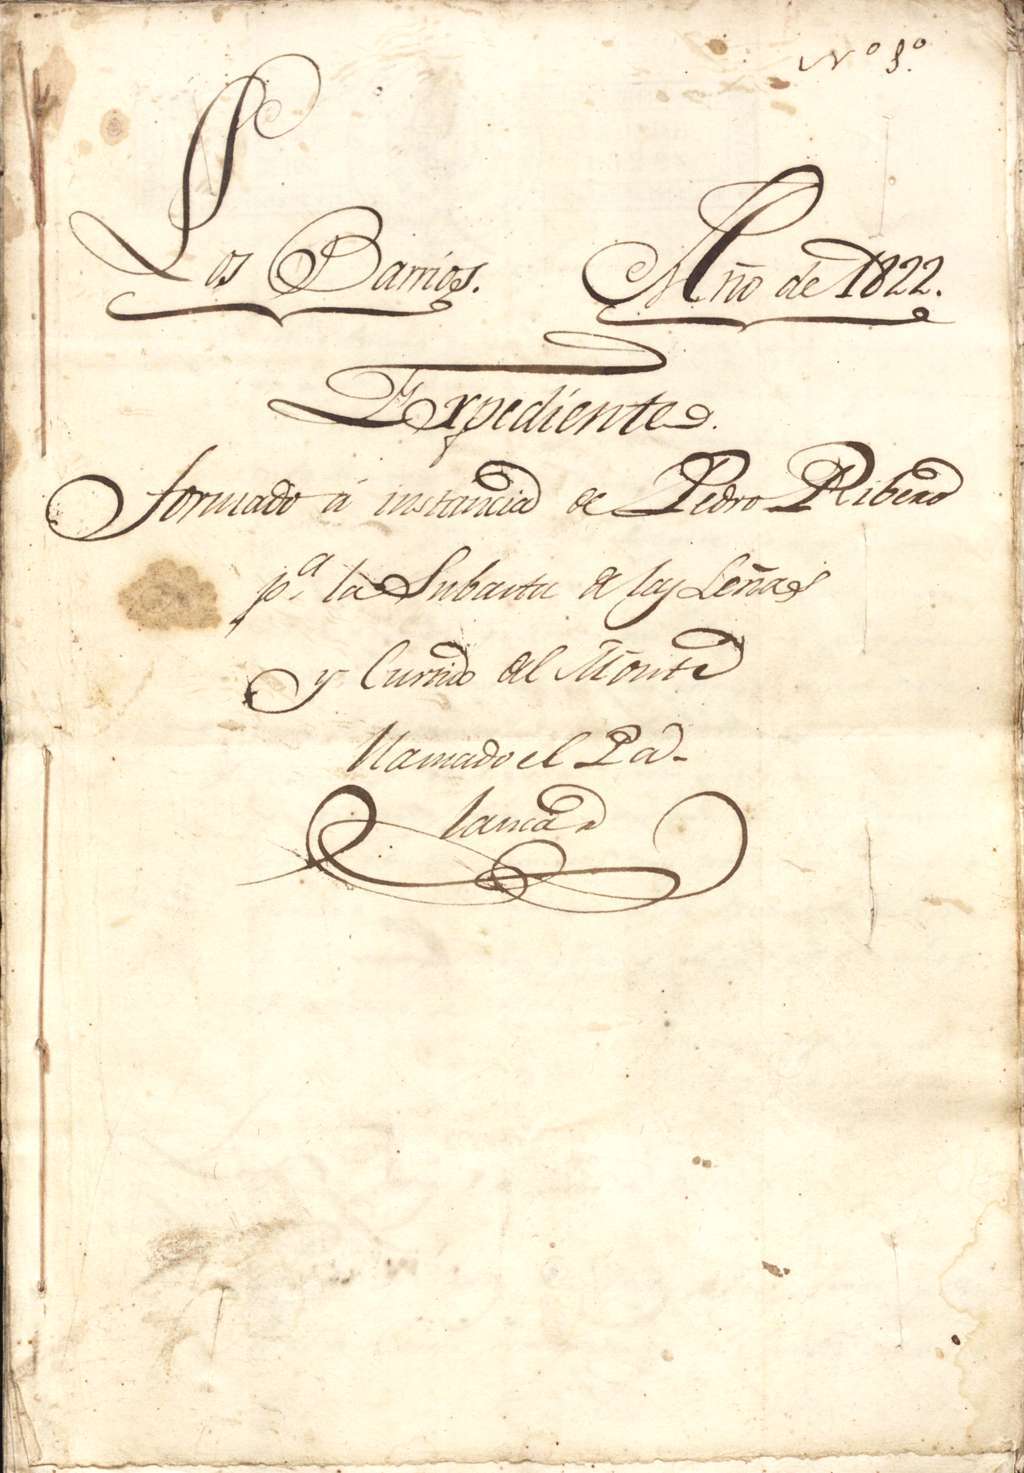 Nº
Los Barrios. Año de 1822.
Expediente.
formado á instancia de Pedro Ribero
pª. la Subasta de las Leñas
y Curtido del Monte
llamado el Pa-
lancar